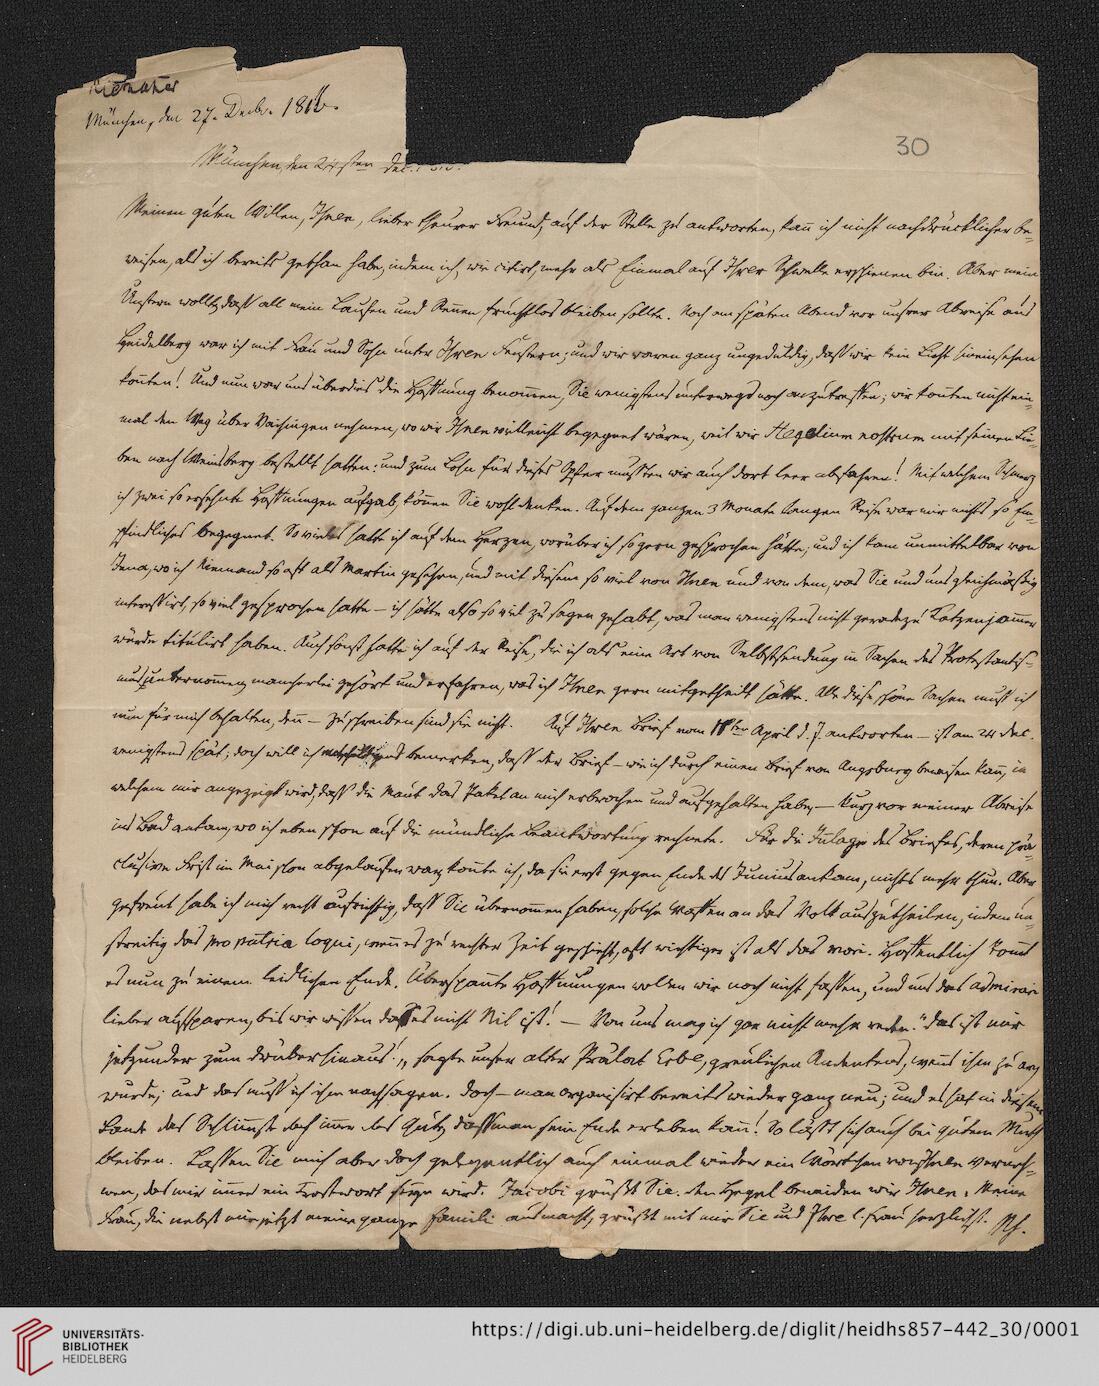 Niethammer
München, den 27. Decbr. 1816.
30
München, den 27sten Dec. 1816.
Meinen guten Willen, Ihnen, lieber theurer Freund, auf der Stelle zu antworten, kann ich nicht nachdrücklicher be-
weisen, als ich bereits gethan habe, indem ich, wie citirt, mehr als Einmal auf Ihrer Schwelle erschienen bin. Aber mein
Unstern wollte, daß all mein Laufen und Rennen fruchtlos bleiben sollte. Noch am späten Abend vor unsrer Abreise aus
Heidelberg war ich mit Frau und Sohn unter Ihren Fenstern; und wir waren ganz ungeduldig, daß wir kein Licht hineinsehen
konnten! Und nun war uns überdies die Hoffnung benommen, Sie wenigstens unterwegs noch anzutreffen; wir konnten nicht ein-
mal den Weg über Vaihingen nehmen, wo wir Ihnen vielleicht begegnet wären, weil wir Hegelium nostrum mit seinen Lie-
ben nach Weinsberg bestellt hatten: und zum Lohn für dieses Opfer mussten wir auch dort leer abfahren! Mit welchem Schmerz
ich zwei so ersehnte Hoffnungen aufgab, können Sie wohl denken. Auf dem ganzen 3 Monate langen Reise war mir nichts so Em-
pfindliches begegnet. So vieles hatte ich auf dem Herzen, worüber ich so gern gesprochen hätte; und ich kam unmittelbar von
Jena, wo ich Niemand so oft als Martin gesehen, und mit diesem so viel von Ihnen und von dem, was Sie und uns gleichmäßig
interessirt, so viel gesprochen hatte – ich hätte also so viel zu sagen gehabt, was man wenigstens nicht geradezu Katzenjammer
würde titulirt haben. Auch sonst hatte ich auf der Reise, die ich als eine Art von Selbstsendung in Sachen des Protestantis-
mus unternommen, mancherlei gehört und erfahren, was ich Ihnen gern mitgetheilt hätte. Alle diese schöne Sachen muß ich
nun für mich behalten, denn – zu schreiben sind sie nicht. Auf Ihren Brief vom 18ten April d. J. antworten – ist am 24 Dec.
wenigstens spät; doch will ich bemerken, daß der Brief – wie ich durch einen Brief von Augsburg beweisen kann, in
welchem mir angezeigt wird, daß die Maut das Paket an mich erbrochen und aufgehalten habe, – kurz vor meiner Abreise
ins Bad ankam, wo ich eben schon auf die mündliche Beantwortung rechnete. Für die Inlage des Briefes, deren prä-
clusive Frist im Mai schon abgelaufen war, konnte ich, da sie erst gegen Ende des Junius ankam, nichts mehr thun. Aber
gefreut habe ich mich recht aufrichtig, daß Sie übernommen haben, solche Waffen an das Volk auszutheilen, indem un-
streitig das pro patria loqui, wenn es zu rechter Zeit geschieht, oft wichtiger ist als das mori. Hoffentlich kommt
es nun zu einem leidlichen Ende. Überspannte Hoffnungen wollen wir noch nicht fassen, und uns das admirari
lieber aufsparen, bis wir wissen daß es nicht Nil ist! – Von uns mag ich gar nicht mehr reden. "Das ist nur
jetzunder zum drüberhinaus!" sagte unser alter Prälat Erbe, greulichen Andenkens, wenns ihm zu arg
wurde; und das muß ich ihm nachsagen. Doch – man organisirt bereits wieder ganz neu; und es hat in diesem
Lande das Schlimmste doch immer das Gute, daß man sein Ende erleben kann! So läßt sich auch bei gutem Muth
bleiben. Lassen Sie mich aber doch gelegentlich auch einmal wieder ein Wörtchen von Ihnen verneh-
men, das mir immer ein Trostwort seyn wird. Jacobi grüßt Sie. Um Hegel beneiden wir Ihnen. Meine
Frau, die nebst mir jetzt meine ganze Famili ausmacht, grüßt mit mir Sie und Ihre l. Frau herzlichst. Nh.
UNIVERSITÄTS-
BIBLIOTHEK
HEIDELBERG
https://digi.ub.uni-heidelberg.de/diglit/heidhs857-442_30/0001